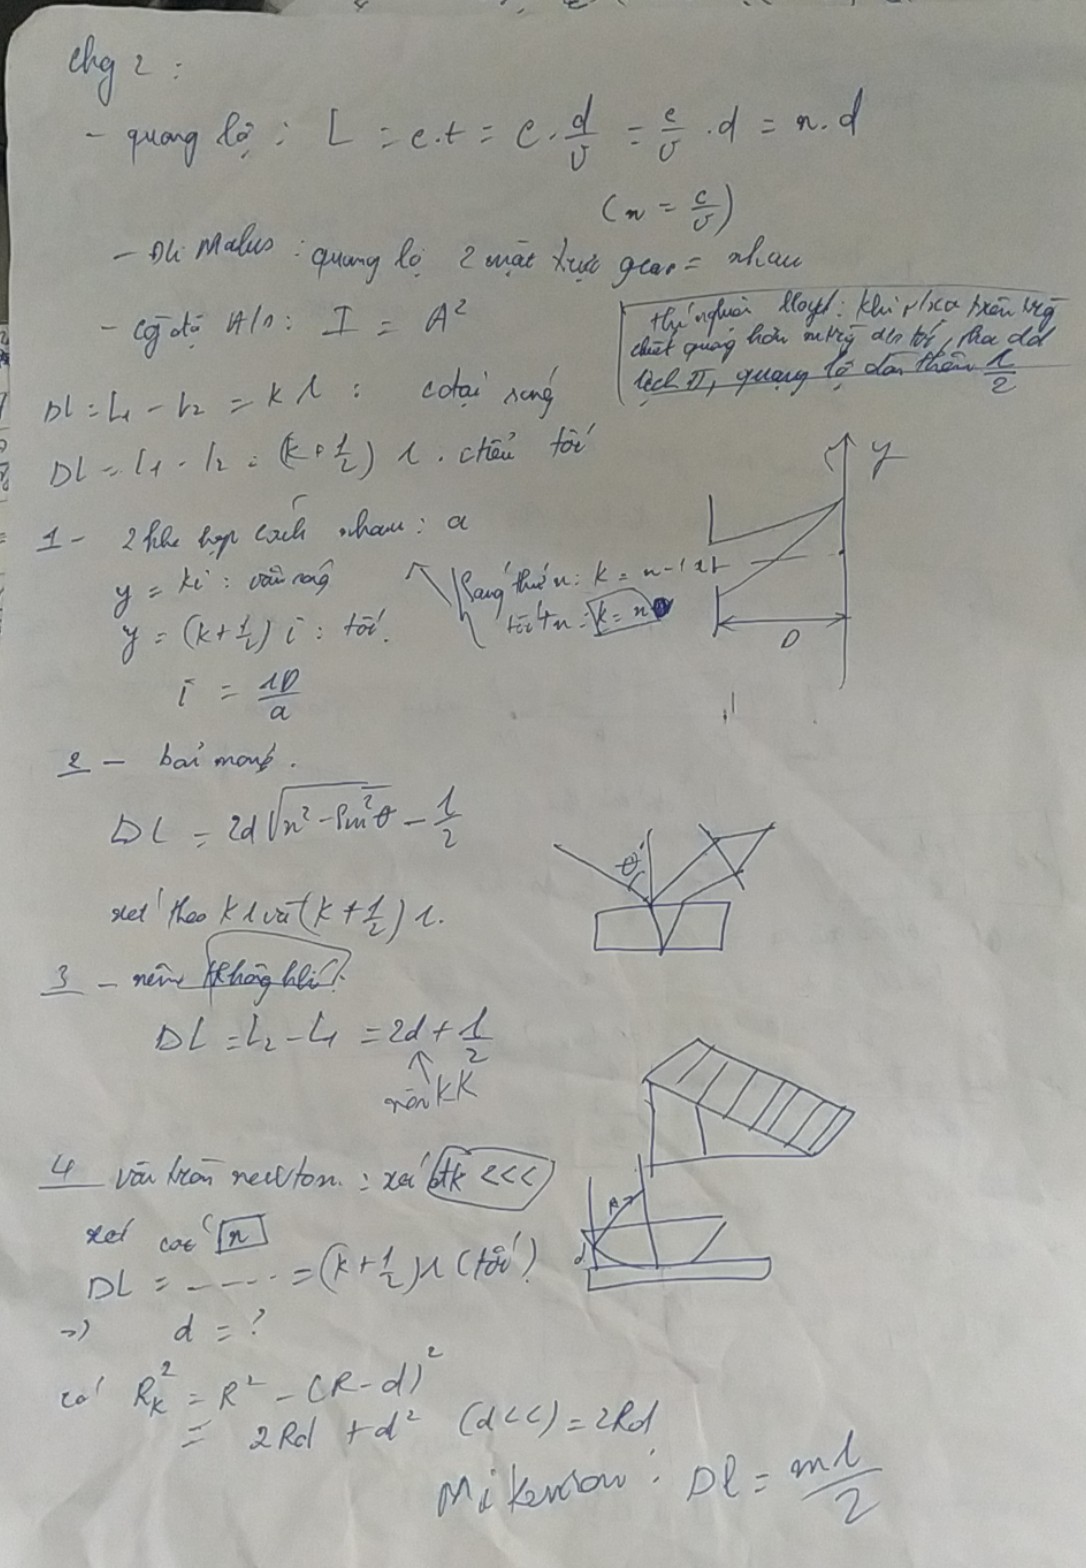 Chg 2 :
- quang lộ : L = c.t = c . d/v = c/v . d = n. d
(n = c/v)
- Đli Malus : quang lộ 2 mặt trực giao = nhau
- Cg độ A/s : I = A²
thí nghiệm Lloyd : khi p/xạ trên trg
chiết quang hơn mtrg as tới, pha dđ
lệch π, quang lộ dài thêm λ/2
DL = L₁ - L₂ = k λ : cđại sáng
DL = L₁ - L₂ = (k + 1/2) λ . ctiểu tối
y
1 - 2 khe hẹp cách nhau : a
y = ki : vân sáng
Sáng thứ n : k = n - 1
y = (k + 1/2) i : tối.
tối tn : k = n
D
i = λD/a
2 - bản mỏng.
DL = 2d √(n² - sin²θ) - λ/2
θ
xét theo k λ và (k + 1/2) λ.
3 - nêm không khí.
DL = L₂ - L₁ = 2d + λ/2
nêm KK
4 vân tròn newton : xét btk <<<
xét các n
R
d
DL = ..... = (k + 1/2) λ (tối)
=> d = ?
có R_k² = R² - (R - d)²
= 2Rd + d² (d <<) = 2Rd
Mikenson : Dl = mλ/2